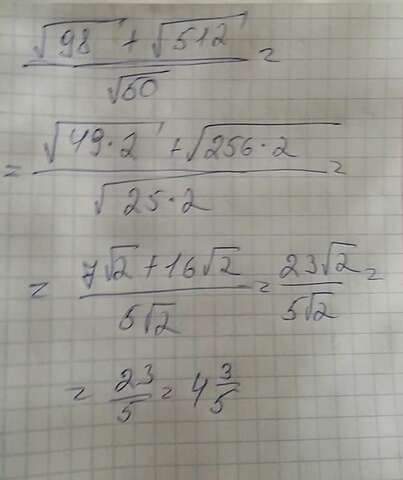 (√98 + √512) / √50 =
= (√49·2 + √256·2) / √25·2 =
= (7√2 + 16√2) / 5√2 = 23√2 / 5√2 =
= 23/5 = 4 3/5